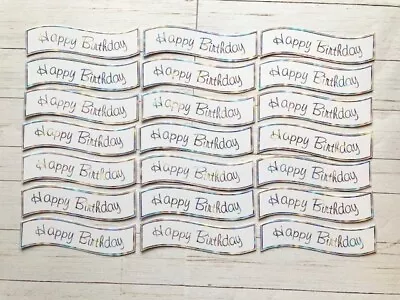 Happy Birthday Happy Birthday Happy Birthday
Happy Birthday Happy Birthday Happy Birthday
Happy Birthday Happy Birthday Happy Birthday
Happy Birthday Happy Birthday Happy Birthday
Happy Birthday Happy Birthday Happy Birthday
Happy Birthday Happy Birthday Happy Birthday
Happy Birthday Happy Birthday Happy Birthday